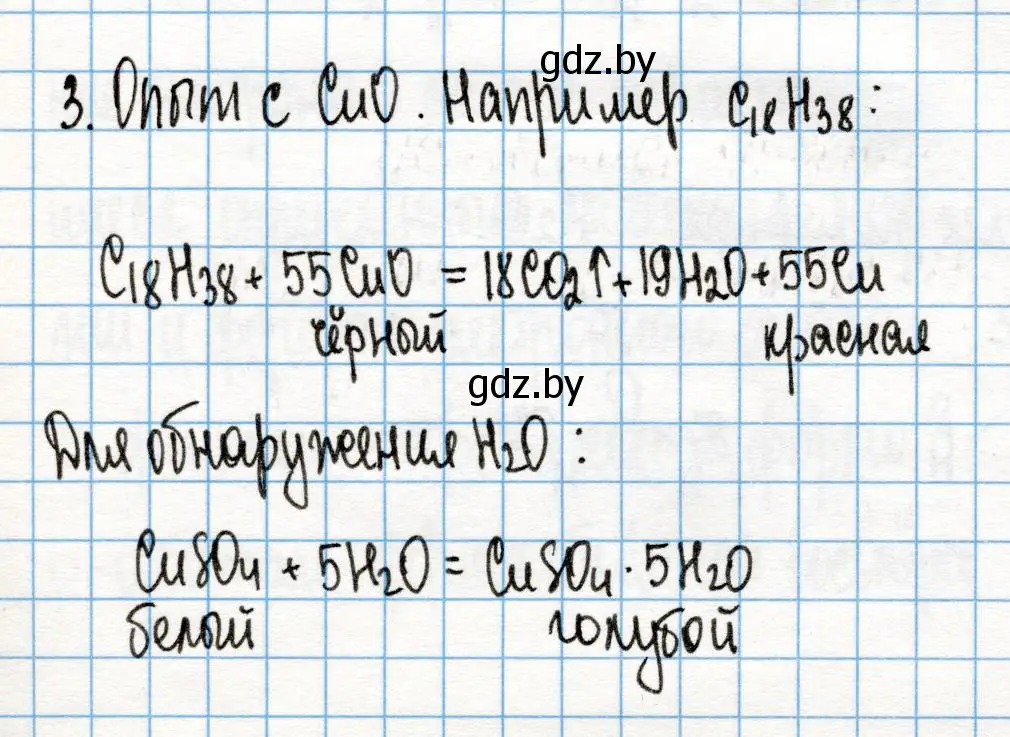 gdz.by
3. Опыт с CuO. Например C₁₈H₃₈:
C₁₈H₃₈ + 55CuO = 18CO₂↑ + 19H₂O + 55Cu
чёрный красная
gdz.by
Для обнаружения H₂O:
CuSO₄ + 5H₂O = CuSO₄·5H₂O
белый голубой